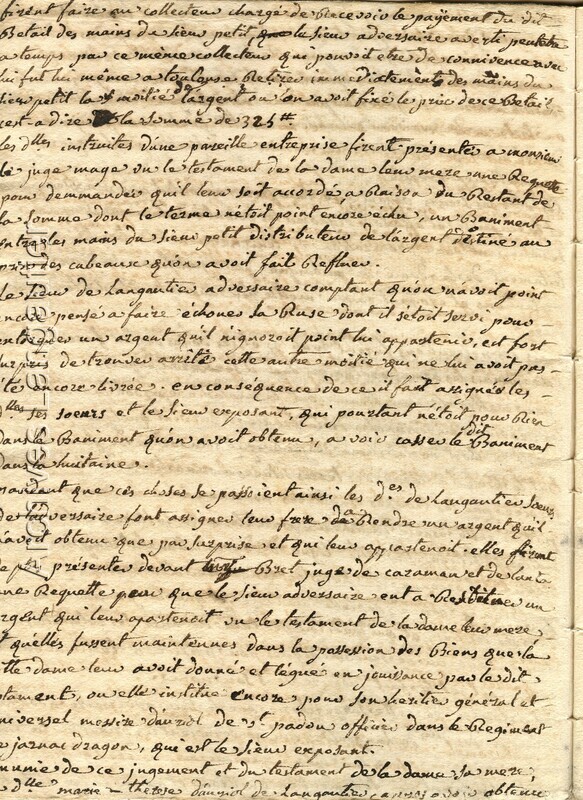 firent faire au collecteur chargé de recevoir le payement du dit
Betail des mains du sieur petit que le sieur adversaire averti peutetre
a temps par ce même collecteur qui pouvoit etre de connivence avec
lui fut lui même a toulouse Retirer immédiatement des mains du
sieur petit la moitié de l'argent ou l'on avoit fixé le prix de ce Betail
c'est-a-dire la somme de 325 ₶
les dlles instruites d'une pareille entreprise firent présenter a monsieur
le juge mage vu le testament de la dame leur mere une Requette
pour demmander qu'il leur soit accordé, a Raison du Restant de
la somme dont le terme n'étoit point encore échu, un Baniment
entre les mains du sieur petit distributeur de l'argent destiné au
prix des cabeaux qu'on avoit fait
le sieur de Langautier adversaire comptant qu'on n'avoit point
encore pensé a faire échouer la Ruse dont il s'étoit servi pour
un argent qu'il n'ignoroit point lui appartenir, est fort
surpris de trouver arrêté cette autre moitié qui ne lui avoit pas
été encore livrée. en conséquence de ce il fait assigner les
dlles ses soeurs et le sieur exposant, qui pourtant n'étoit pour Rien
dans le Baniment qu'on avoit obtenu, a voir casser le dit Baniment
dans la huitaine.
pendant que ces choses se passoient ainsi les des de Langautier soeurs
de l'adversaire font assigner leur frere a Rendre un argent qu'il
n'avoit obtenu que par surprise et qui leur appartenoit. elles firent
de plus présenter devant Bret juge de caraman et de lanta
une Requette pour que le sieur adversaire eut a Restituer un
argent qui leur apartenoit vu le testament de la dame leur mere
et qu'elles fussent maintenues dans la possession des Biens que la
dlle dame leur avoit donné et légué en jouissance par le dit
testament, ou elle institue encore pour son heritier général et
universel messire d'auriol de St padou officier dans le Regiment
de jarnac dragon, qui est le sieur exposant.
munie de ce jugement et du testament de la dame sa mere,
dlle marie-therese d'auriol de Langautier avoir obtenu